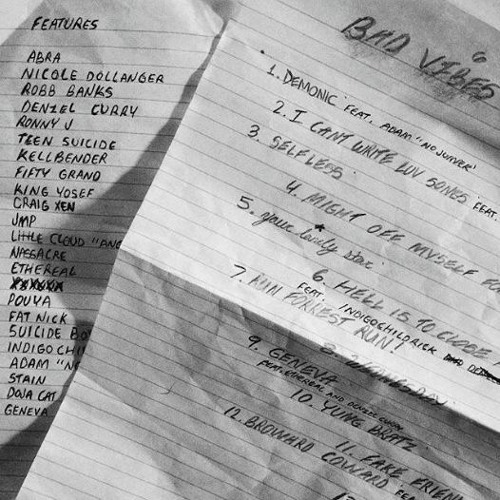 FEATURES
ABRA
NICOLE DOLLANGER
ROBB BANKS
DENZEL CURRY
RONNY J
TEEN SUICIDE
KELLBENDER
FIFTY GRAND
KING YOSEF
CRAIG XEN
JMP
LITTLE CLOUD "ANG
NASSACRE
ETHEREAL
POUYA
FAT NICK
SUICIDE BO
INDIGO CHI
ADAM "NO
STAIN
DOJA CAT
GENEVA
BAD VIBES
6
1. DEMONIC FEAT. ADAM "NOJUMPER"
2. I CANT WRITE LUV SONGS FEAT.
3. SELFLESS
4. MIGHT OFF MYSELF FO
5. your lonely star
6. HELL IS TO CLOSE
FEAT. INDIGOCHILDRICK
7. RUN FORREST RUN!
8.
9. GENEVA
FEAT. ETHEREAL AND DENZEL CURRY
10. YUNG BRATZ
11. FAKE FRIEN
12. BROWARD COWARD